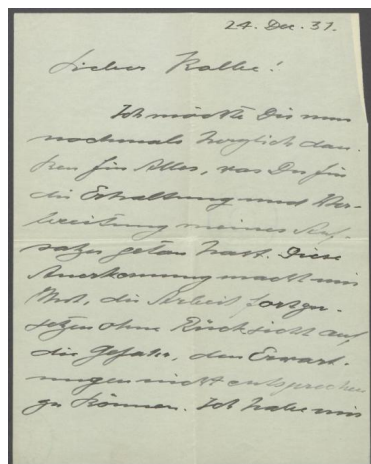 24. Dec. 31.
Lieber Kolbe!
Ich möchte Dir nun
nochmals herzlich dan-
ken für Alles, was Du für
die Erhaltung und Ver-
breitung meines Auf-
satzes getan hast. Diese
Anerkennung macht mir
Mut, die Arbeit fortzu-
setzen ohne Rücksicht auf
die Gefahr, den Erwart-
ungen nicht entsprechen
zu können. Ich habe mir